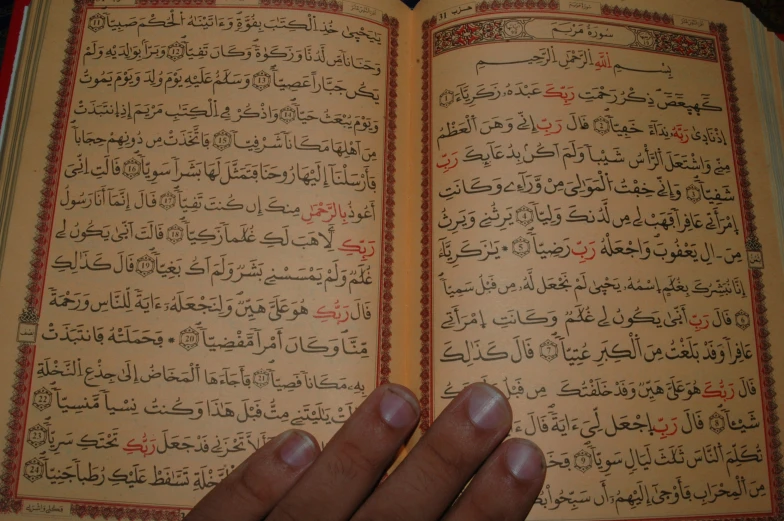 سورة مريم
بسم الله الرحمن الرحيم
كهيعص ذكر رحمت ربك عبده زكرياء 1
إذ نادى ربه نداء خفيا 2 قال رب إني وهن العظم
مني واشتعل الرأس شيبا ولم أكن بدعائك رب
شقيا 3 وإني خفت الموالي من وراءي وكانت
امرأتي عاقرا فهب لي من لدنك وليا 4 يرثني ويرث
من ءال يعقوب واجعله رب رضيا 5 يزكرياء
انا نبشرك بغلم اسمه يحيى لم نجعل له من قبل سميا
6 قال رب أنى يكون لي غلم وكانت امرأتي
عاقرا وقد بلغت من الكبر عتيا 7 قال كذلك
قال ربك هو علي هين وقد خلقتك من قبل ولم تك
شيئا 8 قال رب اجعل لي ءاية قال ءا
تكلم الناس ثلث ليال سويا 9 فخر
من المحراب فأوحى إليهم أن سبحوا بك
ييحيى خذ الكتب بقوة وءاتينه الحكم صبيا 11
وحنانا من لدنا وزكوة وكان تقيا 12 وبرا بوالديه ولم
يكن جبارا عصيا 13 وسلم عليه يوم ولد ويوم يموت
ويوم يبعث حيا 14 واذكر في الكتب مريم إذ انتبذت
من اهلها مكانا شرقيا 15 فاتخذت من دونهم حجابا
فأرسلنا إليها روحنا فتمثل لها بشرا سويا 16 قالت اني
أعوذ بالرحمن منك إن كنت تقيا 17 قال إنما أنا رسول
ربك لاهب لك غلما زكيا 18 قالت أنى يكون لي
غلم ولم يمسسني بشر ولم اك بغيا 19 قال كذلك
قال ربك هو علي هين ولنجعله ءاية للناس ورحمة
منا وكان أمرا مقضيا 20 فحملته فانتبذت
به مكانا قصيا 21 فأجاءها المخاض إلى جذع النخلة
قالت يليتني مت قبل هذا وكنت نسيا منسيا 22
ألا تحزني قد جعل ربك تحتك سريا 23
النخلة تسقط عليك رطبا جنيا 24
فكلي واشربي